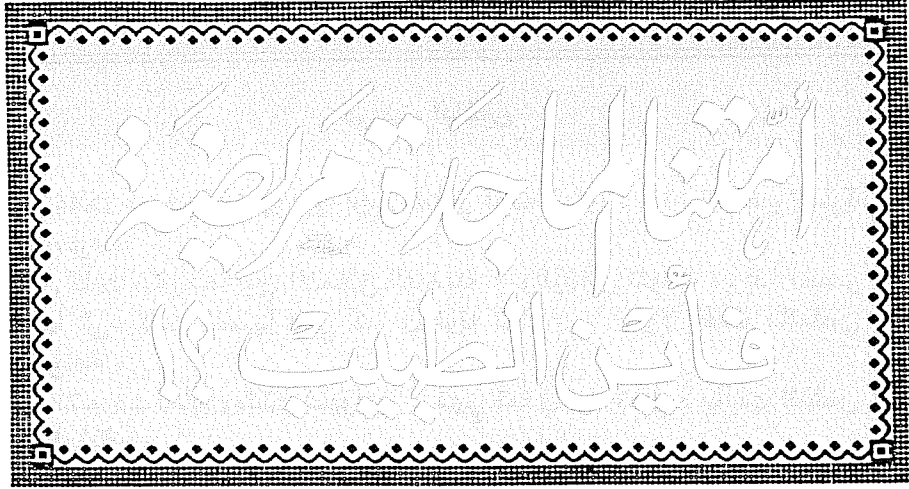 أُمَّتنا الماجدَة مَريضَة
فأيْنَ الطبيبُ ؟!